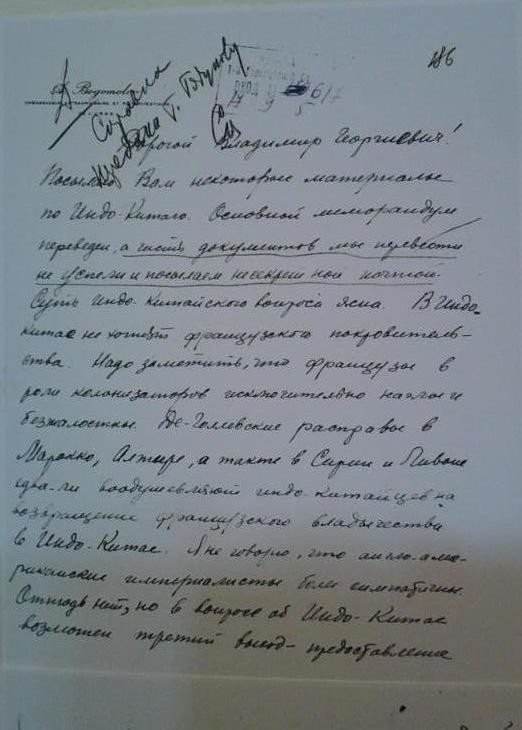 186
617
Дорогой Владимир Георгиевич!
Посылаю Вам некоторые материалы
по Индо-Китаю. Основной меморандум
переведен, а часть документов мы перевести
не успели и посылаем несекретной почтой.
Суть Индо-Китайского вопроса ясна. В Индо-
Китае не хотят французского покровитель-
ства. Надо заметить, что французы в
роли колонизаторов исключительно наглы и
безжалостны. Де-Голлевские расправы в
Марокко, Алжире, а также в Сирии и Ливане
едва-ли воодушевляют индо-китайцев на
возвращение французского владычества
в Индо-Китае. Я не говорю, что англо-аме-
риканские империалисты более симпатичны.
Отнюдь нет, но в вопросе об Индо-Китае
возможен третий выход - предоставление